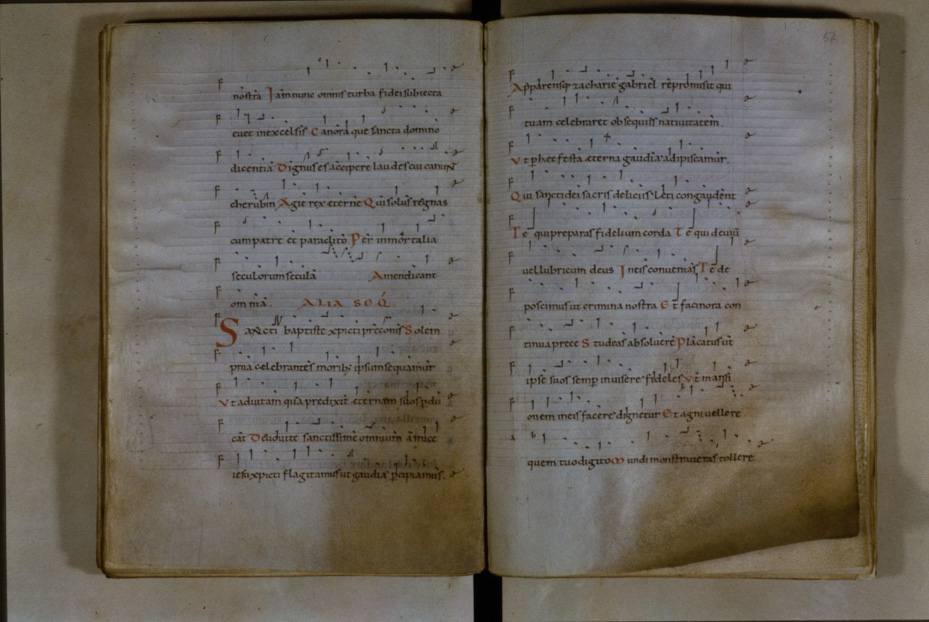 nostra Iam nunc omnis turba fidei subiecta
euet inexcelsis Canora que sancta domino
dicentia Dignus es accipere laudes cui canunt
cherubin Agie rex eterne Qui solus regnas
cum patre et paraclito Per inmortalia
seculorum secula Amen dicant
omnia. ALIA SEQ
Sancti baptiste xpicti preconis Solem
pnia celebrantes morib; ipsum sequamur
Vt ad uiam qua predixit eternam suos pdu
cat Deuoute sanctissime omnium amice
iesu xpicti flagitamus ut gaudia pcipiamus.
57
Apparensq; zacharie gabriel repromisit qui
tuam celebraret obsequiis natiuitatem
Vt p hec festa eterna gaudia adipiscamur.
Qui sancti dei sacris deliciis Leti congaudent
Te qui preparas fidelium corda Te qui deuiu
uel lubricum deus Ineis conuenias Te de
poscimus ut crimina nostra Et facinora con
tinua prece Studeas absoluere Placatus ut
ipse suos semp inuisere fideles Vt mansi
onem ineis facere dignetur Et agni uellere
quem tuo digito Mundi monstraueras tollere